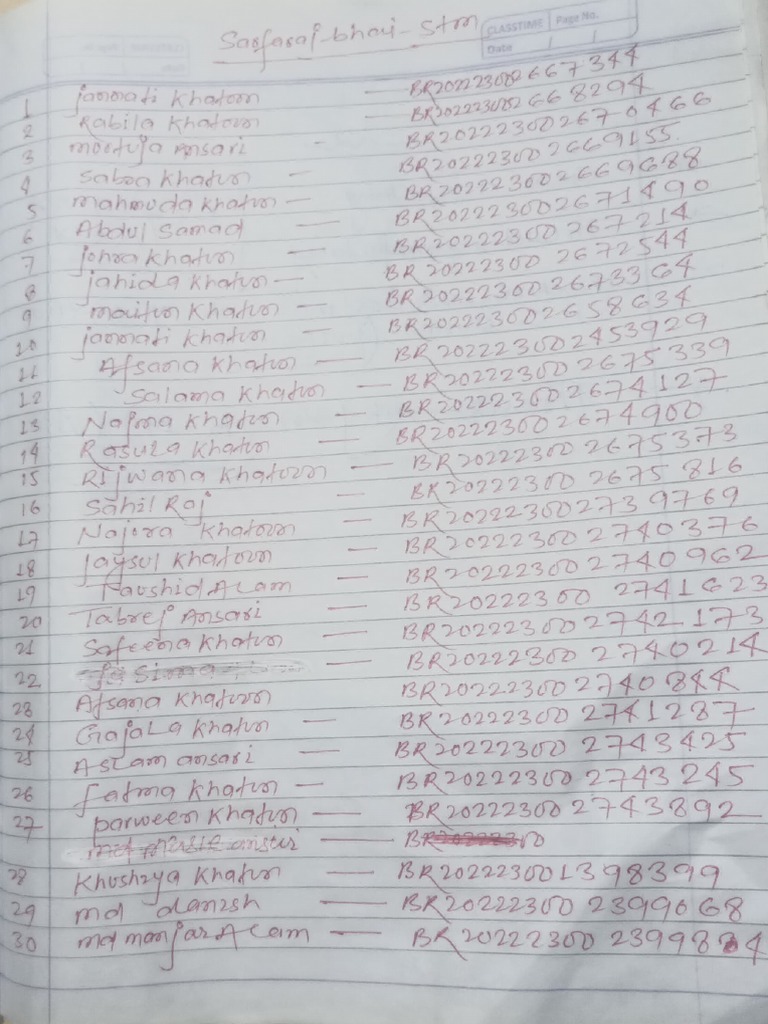 Sarfaraj bhai - Stm
CLASSTIME Page No.
Date / /
1 jannati Khatoon - BR202223002667344
2 Rabila Khatoon - BR202223002668294
3 moortuja Ansari - BR202223002670466
4 Saboa Khatun - BR202223002669155
5 mahmuda Khatun - BR202223002669688
6 Abdul Samad - BR202223002671490
7 johra Khatun - BR20222300267214
8 jahida Khatun - BR20222300 2672544
9 maitun Khatun - BR20222300 2673364
10 jannati Khatun - BR20222300 2658634
11 Afsana Khatun - BR20222300 2453929
12 Salama Khatun - BR20222300 2675339
13 Najma Khatun - BR20222300 2674127
14 Rasula Khatun - BR20222300 2674900
15 Rijwana Khatoon - BR20222300 2675373
16 Sahil Raj - BR20222300 2675816
17 Najora Khatoon - BR20222300 2739769
18 jaysul Khatoon - BR20222300 2740376
19 Taushid Alam - BR20222300 2740962
20 Tabrej Ansari - BR20222300 2741623
21 Safeena Khatun - BR20222300 2742173
22 BR20222300 2740214
23 Afsana Khatoon BR20222300 2740844
24 Gajala Khatun - BR20222300 2741287
25 Aslam ansari - BR20222300 2743425
26 fatma Khatun - BR20222300 2743245
27 parween Khatun - BR20222300 2743892
28 Khushzya Khatun - BR202223001398399
29 md danish - BR20222300 2399068
30 md manjar Alam - BR20222300